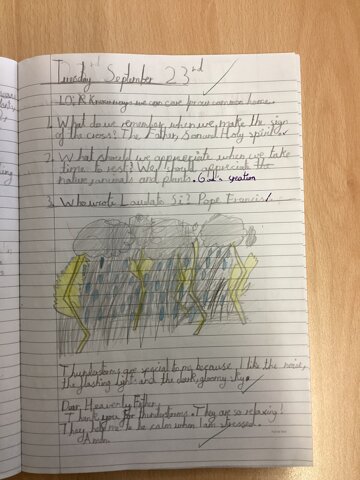 Tuesday September 23rd
L.O. R Know ways we can care for our common home.
1. What do we remember when we make the sign
of the cross? The Father, Son and Holy spirit.
2. What should we appreciate when we take
time to rest? We should appreciate the
nature, animals and plants. God's creation
3. Who wrote Laudato Si? Pope Francis.
Thunderstorms are special to me because I like the noise,
the flashing light and the dark, gloomy sky.
Dear Heavenly Father,
Thank you for thunderstorms. They are so relaxing!
They help me to be calm when I am stressed.
Amen.